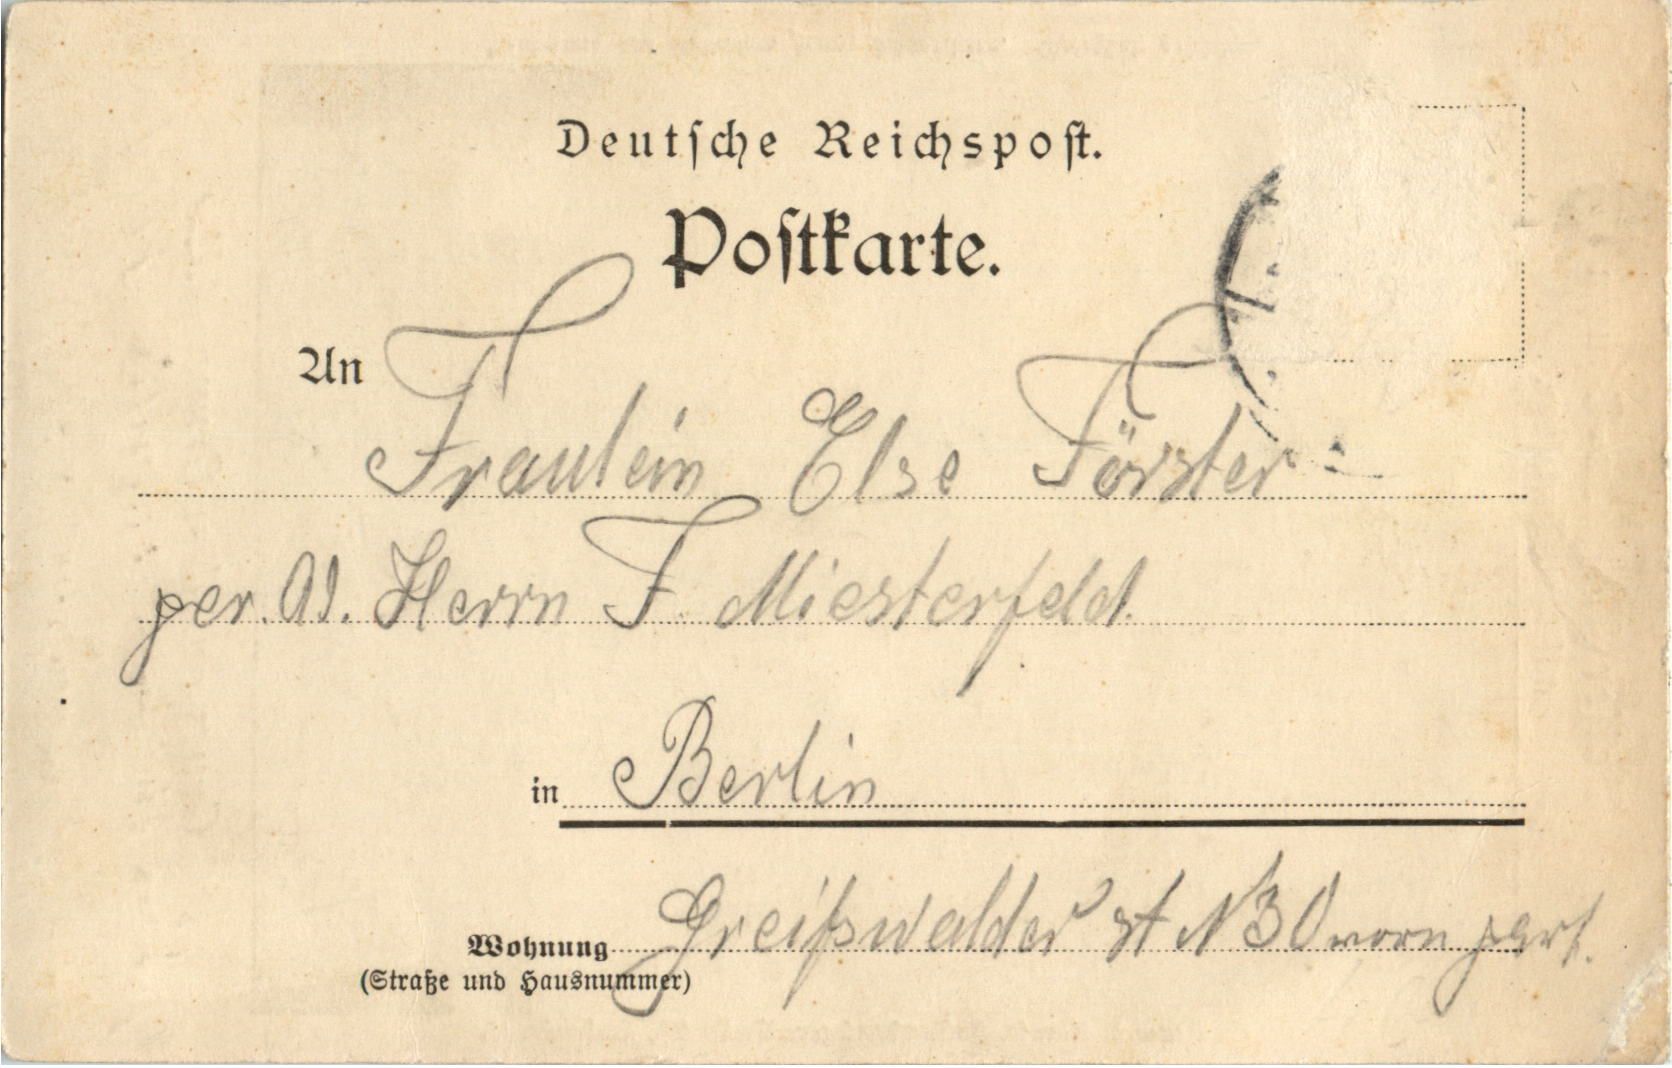 Deutsche Reichspost.
Postkarte.
An
Fraulein Else Förster
per. Ad. Herrn F. Miesterfeld.
in Berlin
Wohnung Greifswalder st N 30 vorn part.
(Straße und Hausnummer)